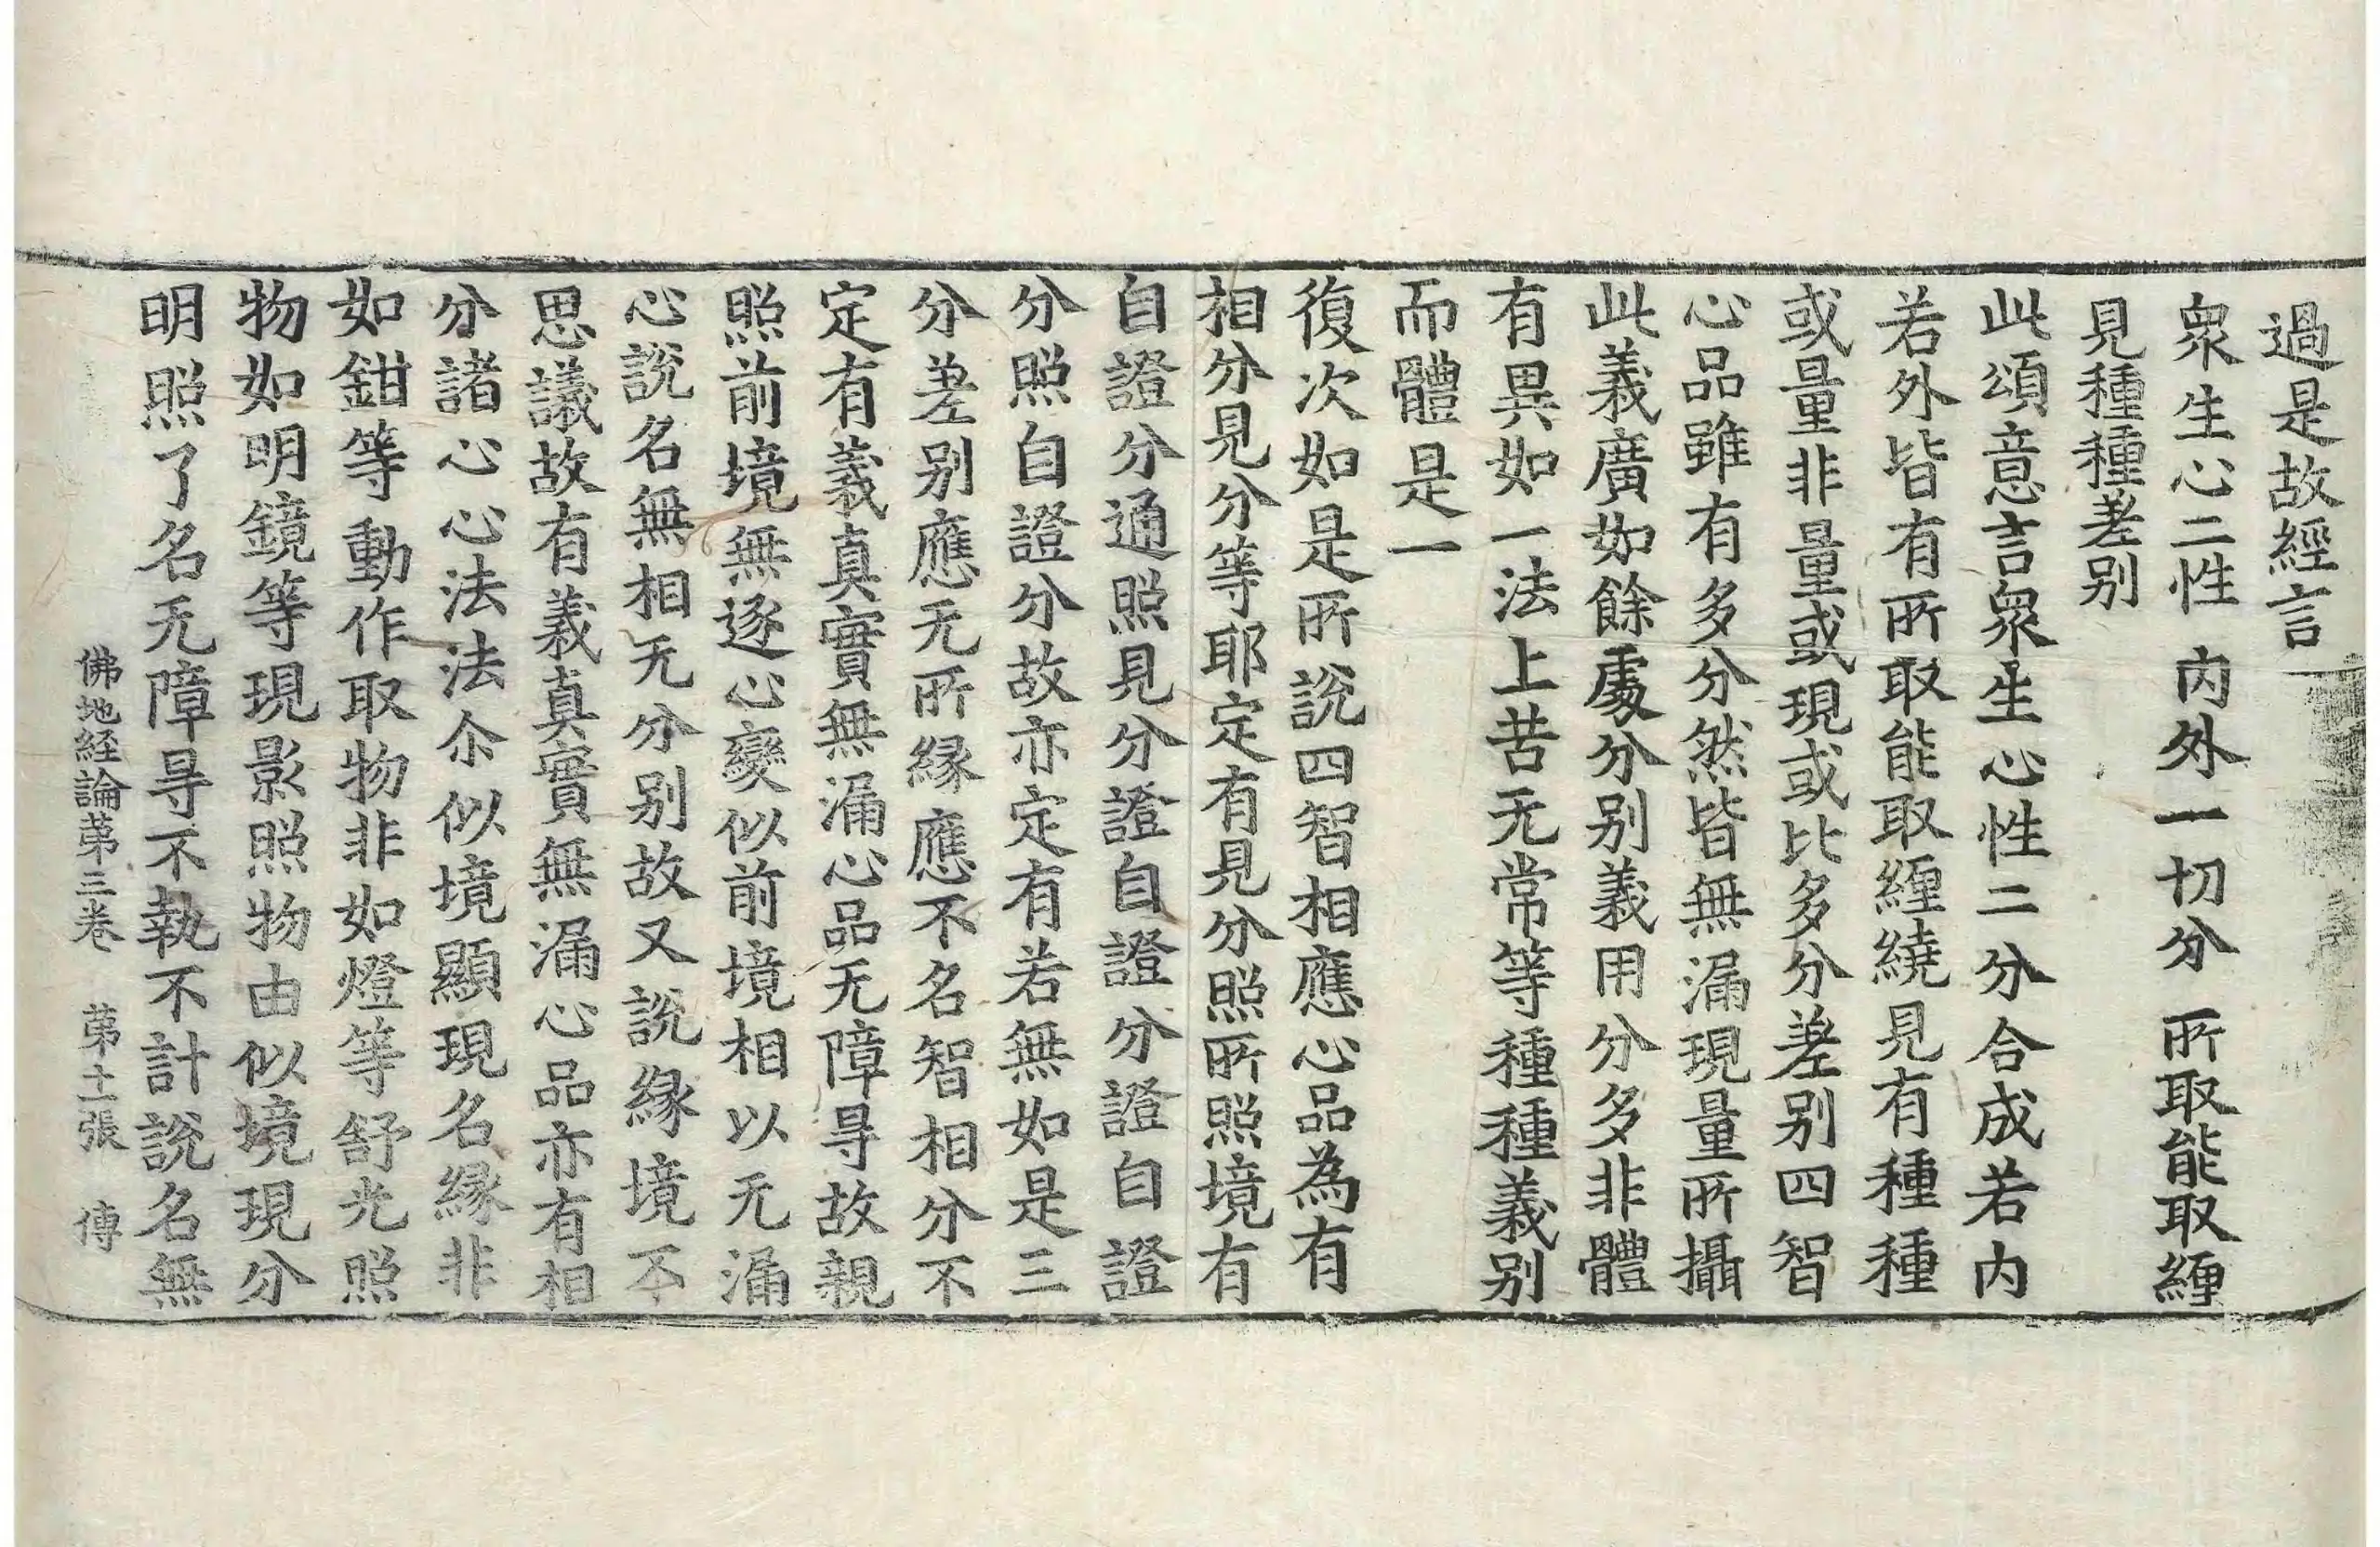 過是故經言
衆生心二性 内外一切分 所取能取纏
見種種差别
此頌意言衆生心性二分合成若内
若外皆有所取能取纏繞見有種種
或量非量或現或比多分差别四智
心品雖有多分然皆無漏現量所攝
此義廣如餘處分别義用分多非體
有異如一法上苦无常等種種義别
而體是一
復次如是所説四智相應心品為有
相分見分等耶定有見分照所照境有
自證分通照見分證自證分證自證
分照自證分故亦定有若無如是三
分差别應无所縁應不名智相分不
定有義真實無漏心品无障㝵故親
照前境無逐心變似前境相以无漏
心説名無相无分别故又説縁境不
思議故有義真實無漏心品亦有相
分諸心心法法尒似境顯現名縁非
如鉗等動作取物非如燈等舒光照
物如明鏡等現影照物由似境現分
明照了名无障㝵不執不計説名無
佛地経論第三卷 第十二張 傳